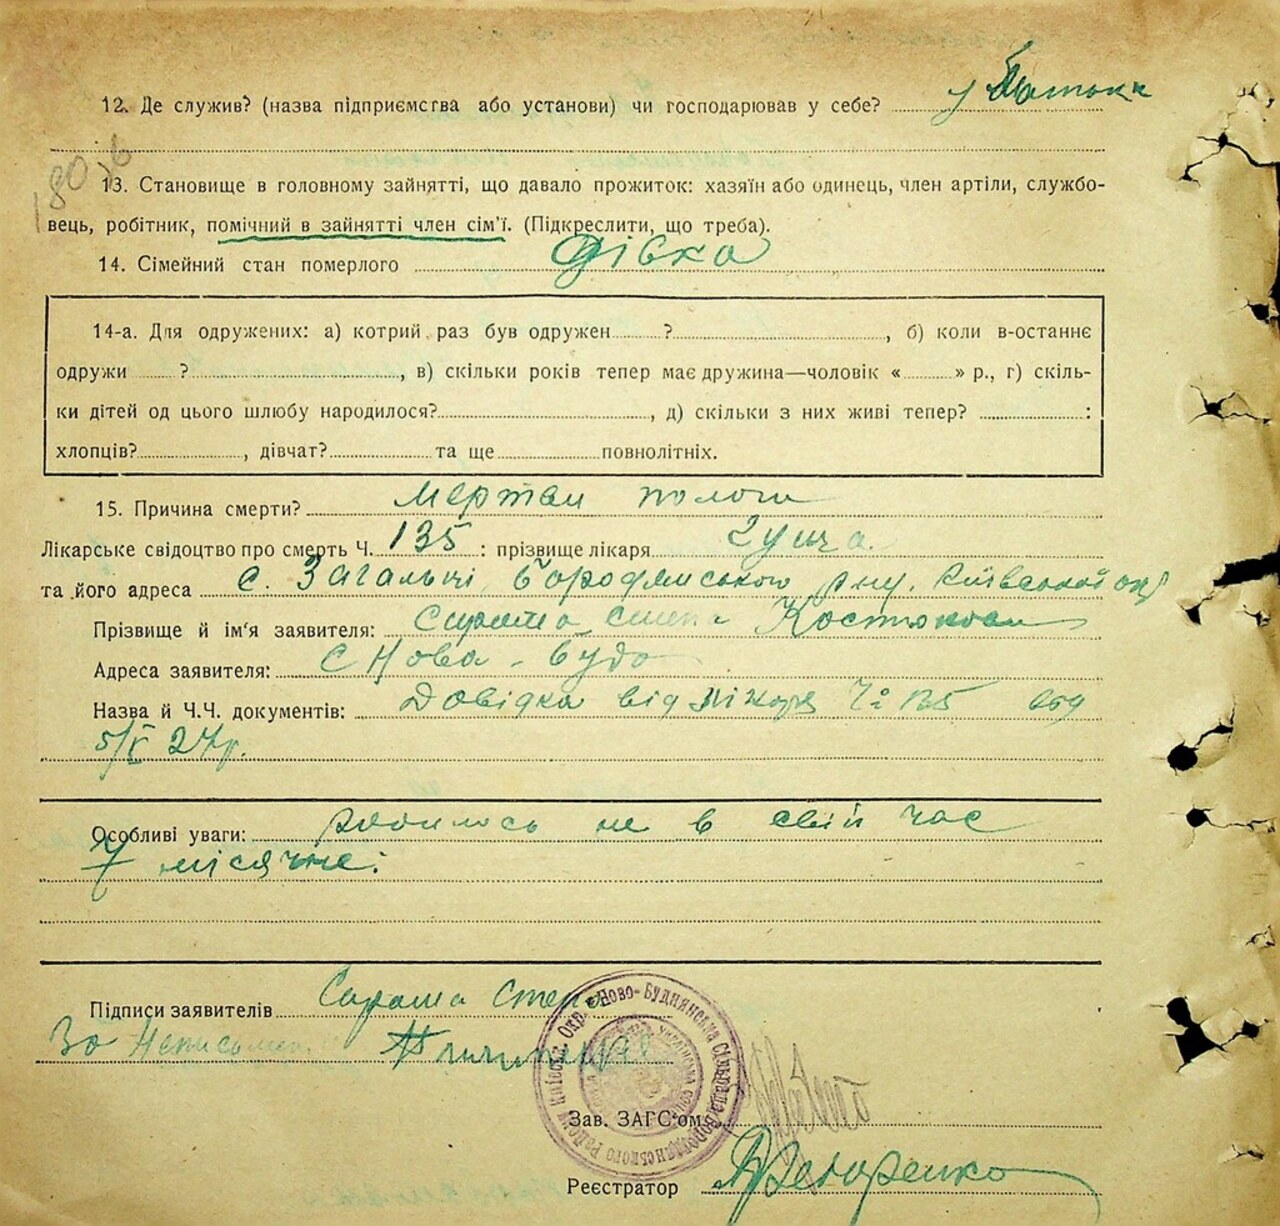 12. Де служив? (назва підприємства або установи) чи господарював у себе? у Батька
180,б
13. Становище в головному зайнятті, що давало прожиток: хазяїн або одинець, член артіли, службо-
вець, робітник, помічний в зайнятті член сім'ї. (Підкреслити, що треба).
14. Сімейний стан померлого дівка
14-а. Для одружених: а) котрий раз був одружен ? , б) коли в-останнє
одружи ? , в) скільки років тепер має дружина—чоловік « » р., г) скіль-
ки дітей од цього шлюбу народилося? , д) скільки з них живі тепер? :
хлопців? , дівчат? та ще повнолітніх.
15. Причина смерти? Мертви пологи
Лікарське свідоцтво про смерть Ч. 135 : прізвище лікаря
та його адреса с. Загальці, Бородянського р-ну, Київської окр
Прізвище й ім'я заявителя:
Адреса заявителя: с Нова-Буда
Назва й Ч.Ч. документів: Довідка від лікаря Ч: 135 від
5/X 27р.
Особливі уваги: родилось не в свій час
7 місячне.
Підписи заявителів
За Неписьмен.
Київськ. Окр. Ново-Буднянська Сільрада Бородянського Району
Зав. ЗАГС'ом
Реєстратор